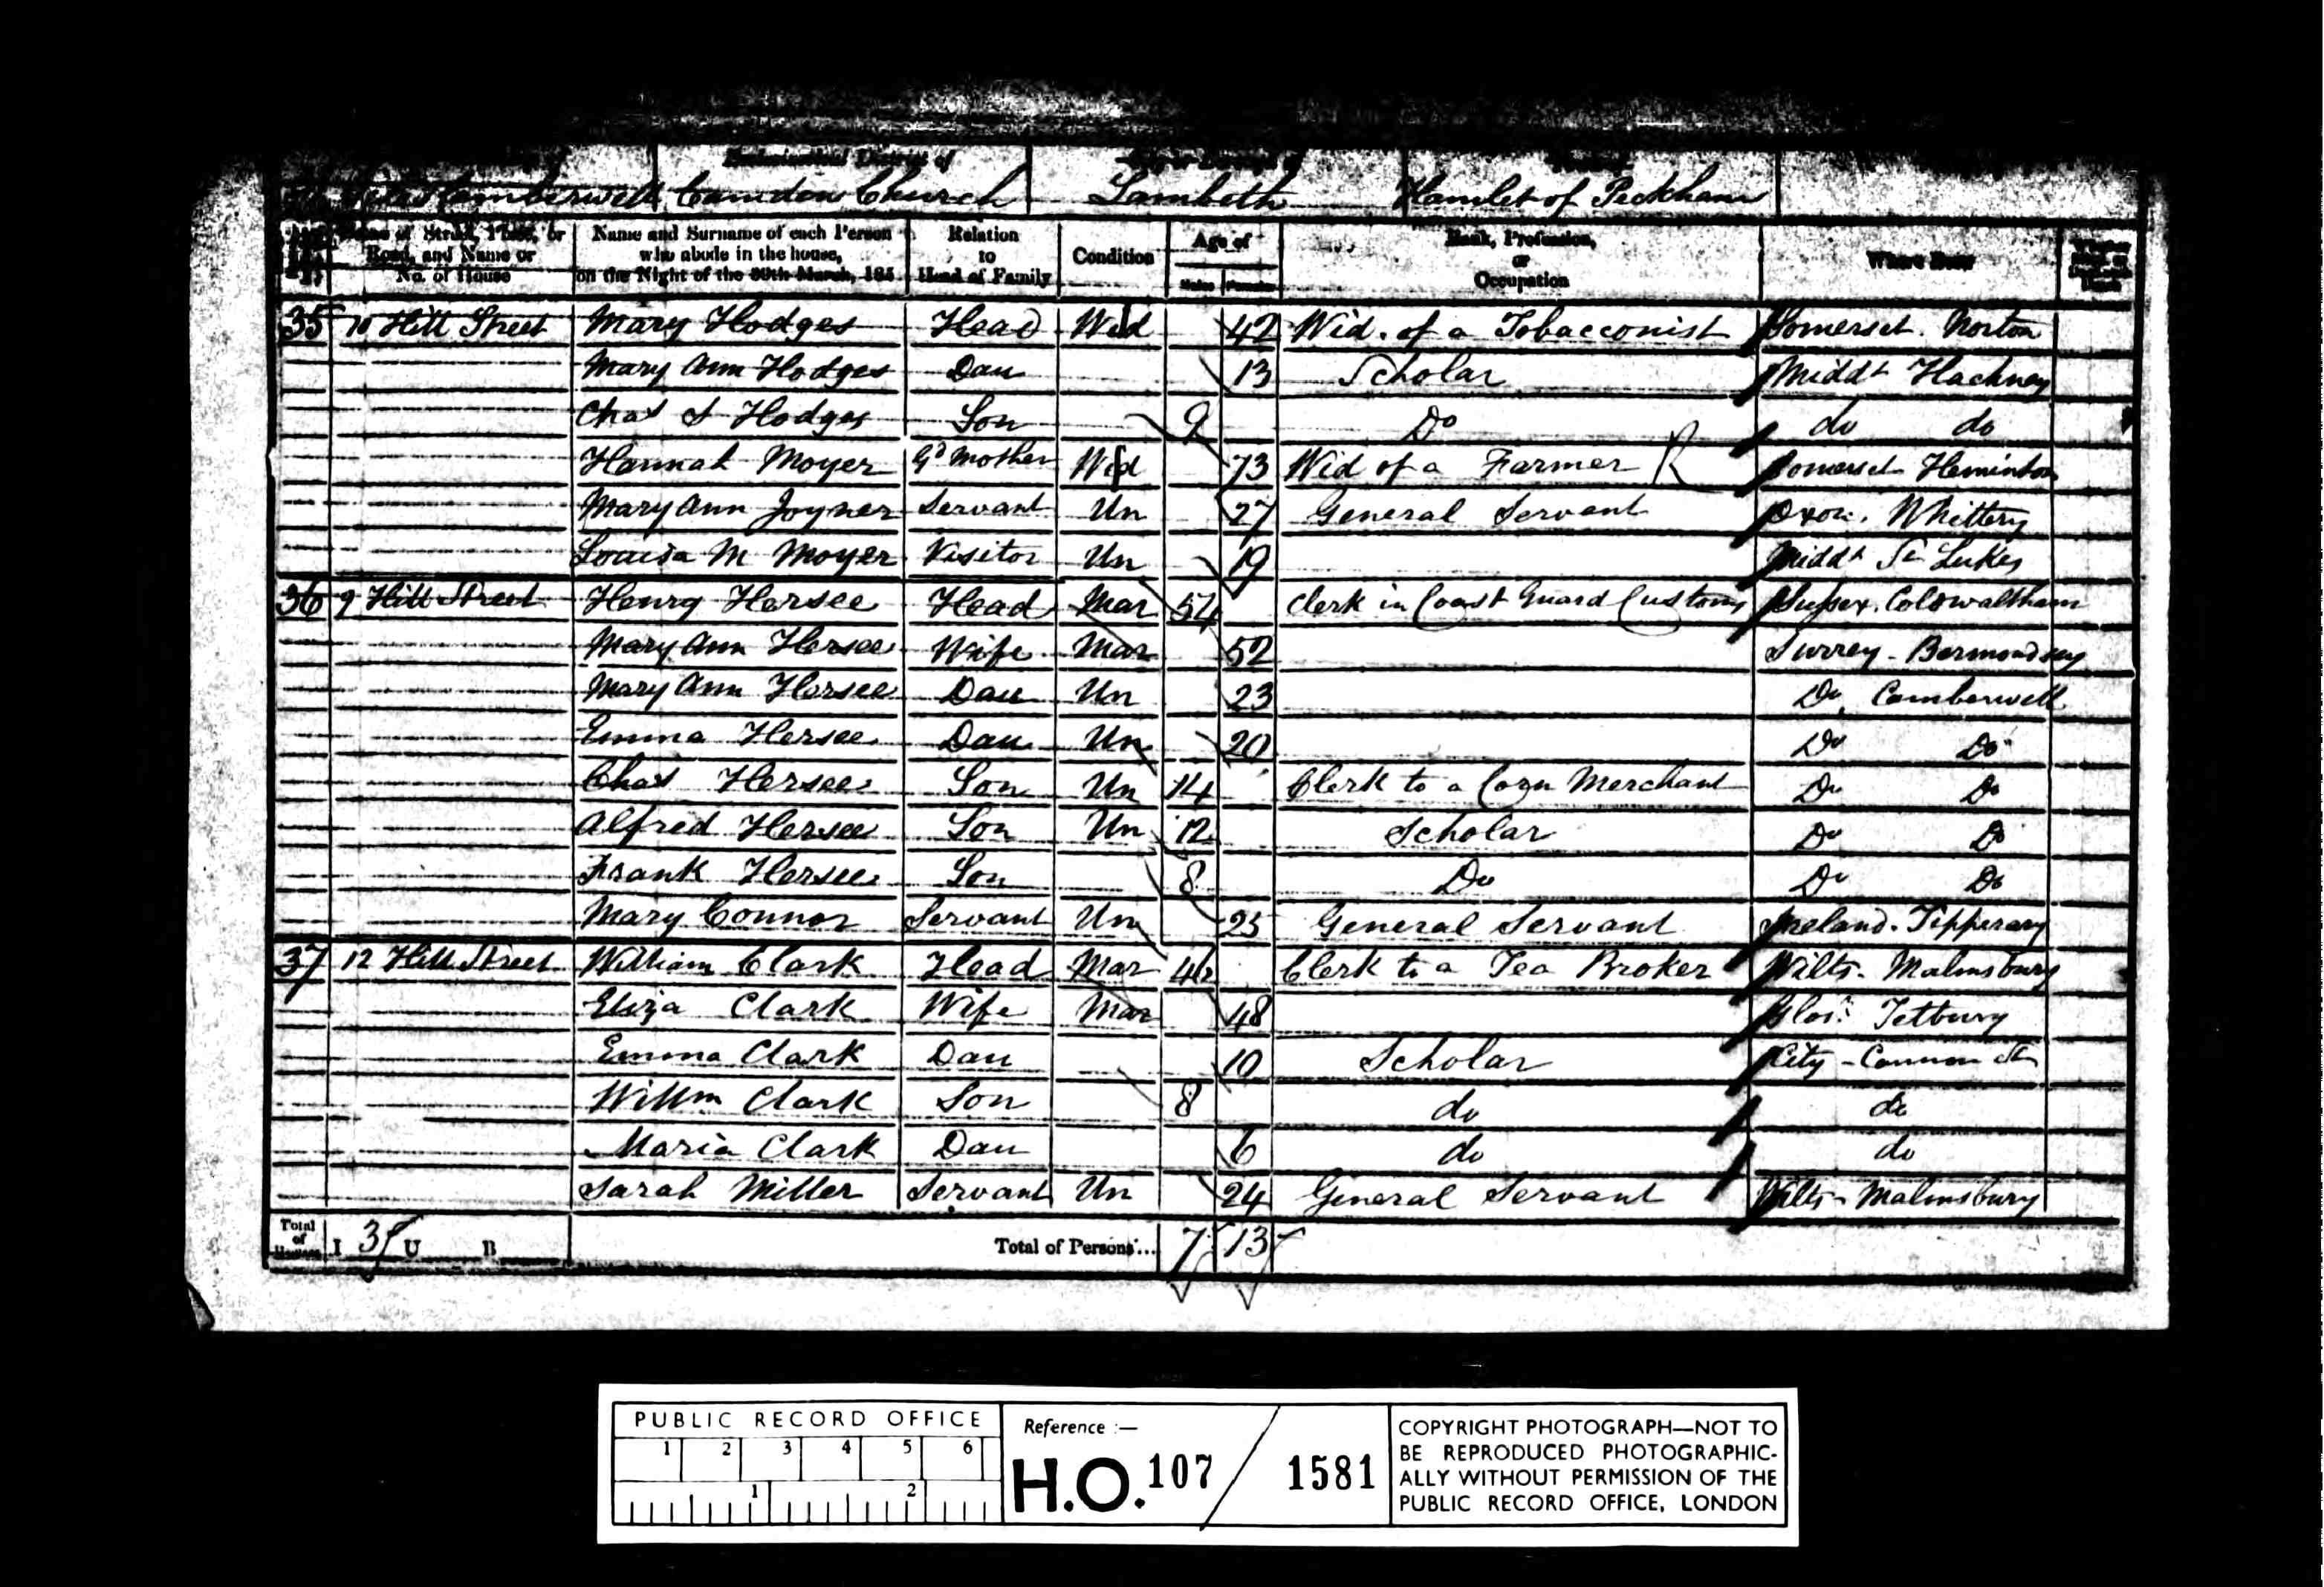 Ecclesiastical District of
Camberwell Camden Church Lambeth Hamlet of Peckham
Name of Street, Place, or Road, and Name or No. of House Name and Surname of each Person who abode in the house, on the Night of the 30th March, 185 Relation to Head of Family Condition Age of Males Females Rank, Profession, or Occupation Where Born
35 10 Hill Street Mary Hodges Head Wid 42 Wid. of a Tobacconist Somerset. Norton
Mary Ann Hodges Dau 13 Scholar Middx Hackney
Chas S Hodges Son 9 Do do do
Hannah Moyer Gd Mother Wid 73 Wid of a Farmer R Somerset Heminton
Mary Ann Joyner Servant Un 27 General Servant Oxon. Whittery
Louisa M Moyer Visitor Un 19 Middx St Lukes
36 9 Hill Street Henry Hersee Head Mar 54 Clerk in Coast Guard Customs Sussex. Coldwaltham
Mary Ann Hersee Wife Mar 52 Surrey - Bermondsey
Mary Ann Hersee Dau Un 23 Do Camberwell
Emma Hersee Dau Un 20 Do Do
Chas Hersee Son Un 14 Clerk to a Corn Merchant Do Do
Alfred Hersee Son Un 12 Scholar Do Do
Frank Hersee Son 8 Do Do Do
Mary Connor Servant Un 25 General Servant Ireland. Tipperary
37 12 Hill Street William Clark Head Mar 46 Clerk to a Tea Broker Wilts. Malmsbury
Eliza Clark Wife Mar 48 Glos. Tetbury
Emma Clark Dau 10 Scholar City - Cannon St
Willm Clark Son 8 do do
Maria Clark Dau 6 do do
Sarah Miller Servant Un 24 General Servant Wilts - Malmsbury
Total of Houses I 3 U B Total of Persons... 7 13
PUBLIC RECORD OFFICE
1 2 3 4 5 6
1 2
Reference :—
H.O. 107 / 1581
COPYRIGHT PHOTOGRAPH—NOT TO
BE REPRODUCED PHOTOGRAPHIC-
ALLY WITHOUT PERMISSION OF THE
PUBLIC RECORD OFFICE, LONDON